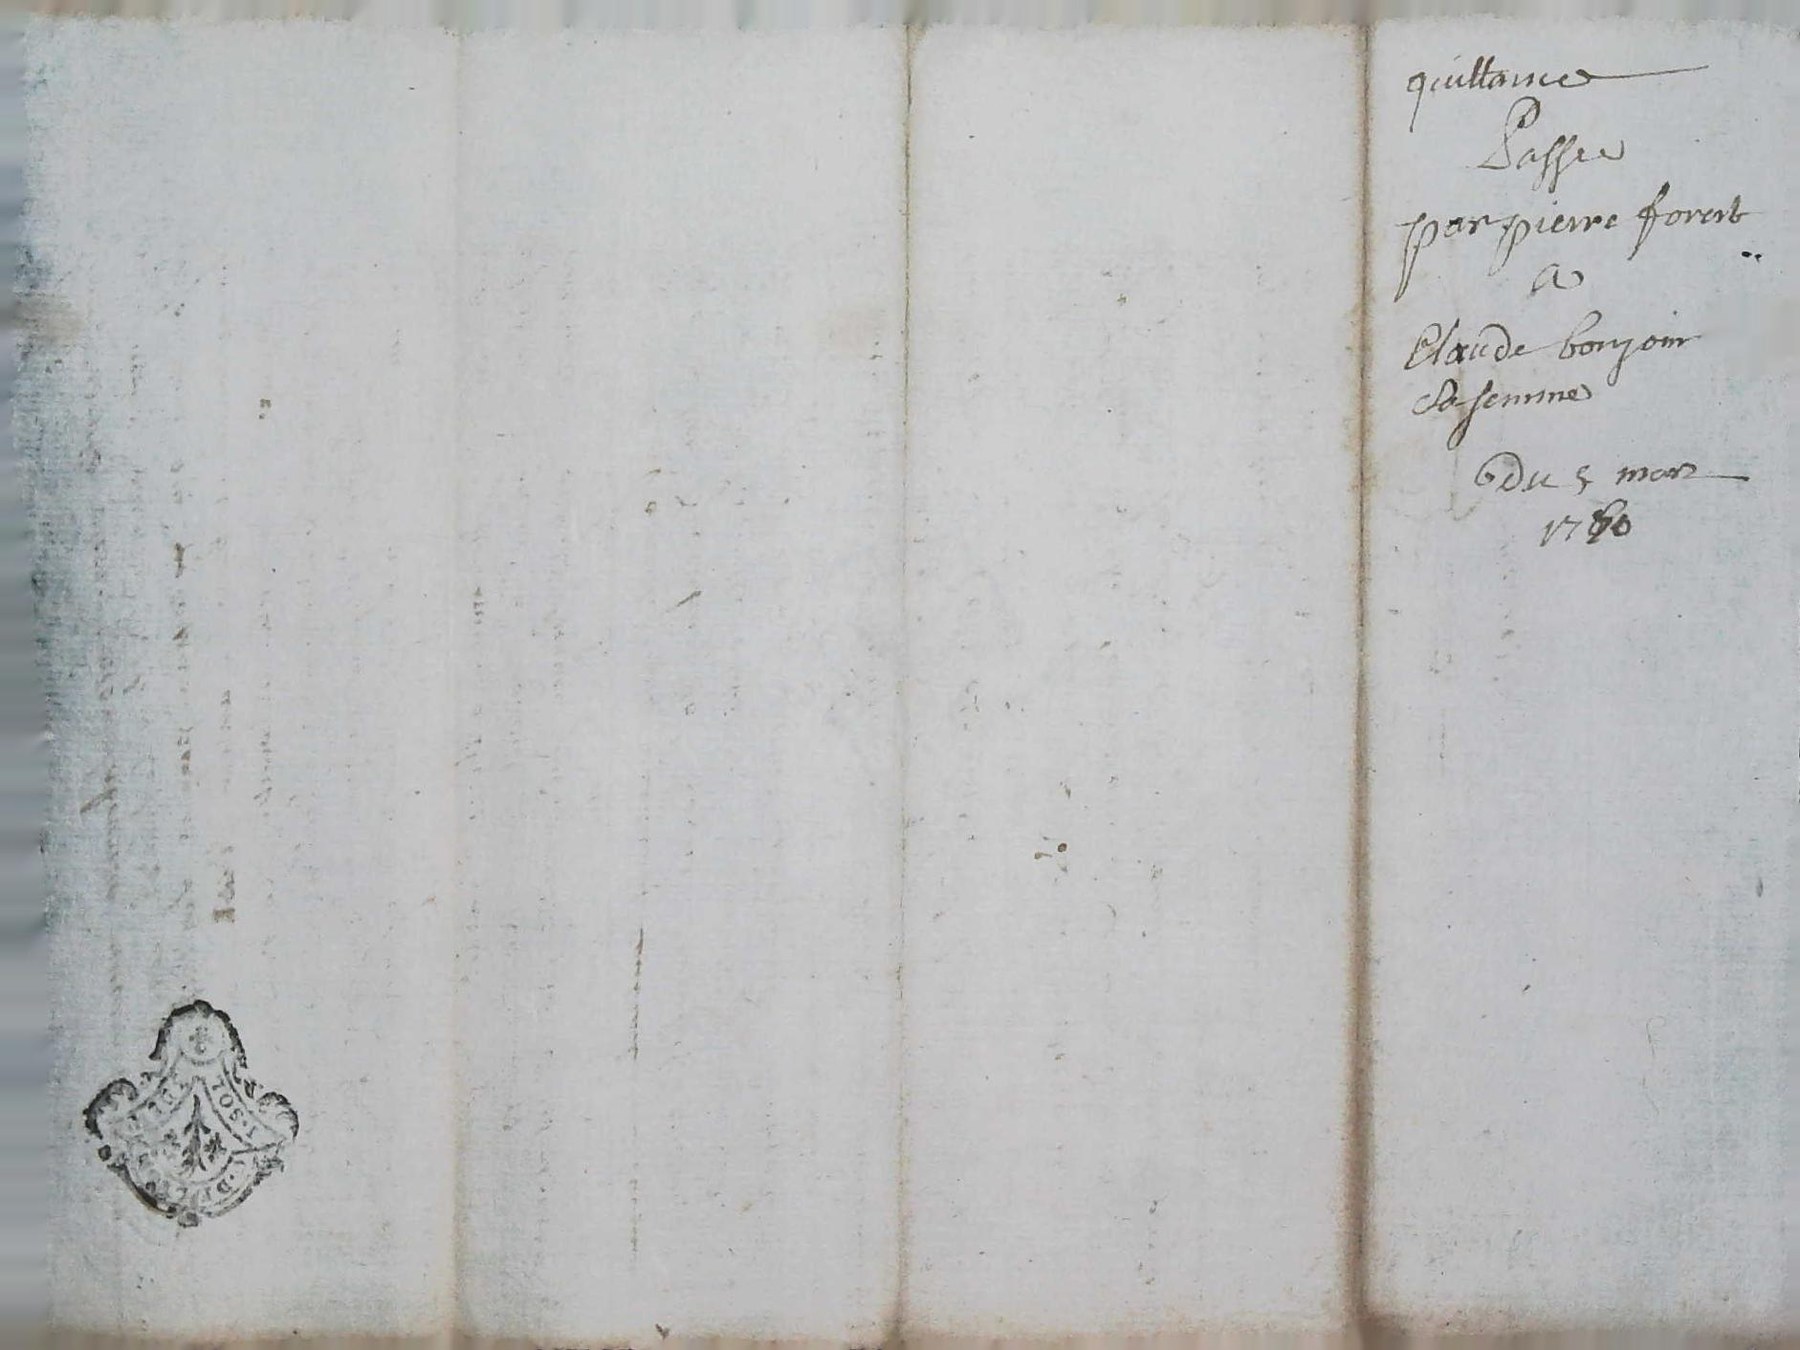 quittance
Passee
par pierre forest
a
Claude bonjour
Sa femme
Du 5 mars
1760